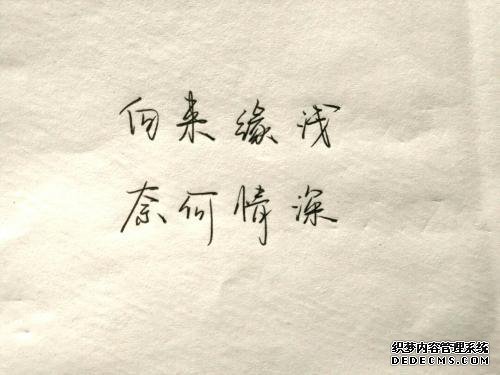 向来缘浅
奈何情深
织梦内容管理系统
DEDECMS.COM